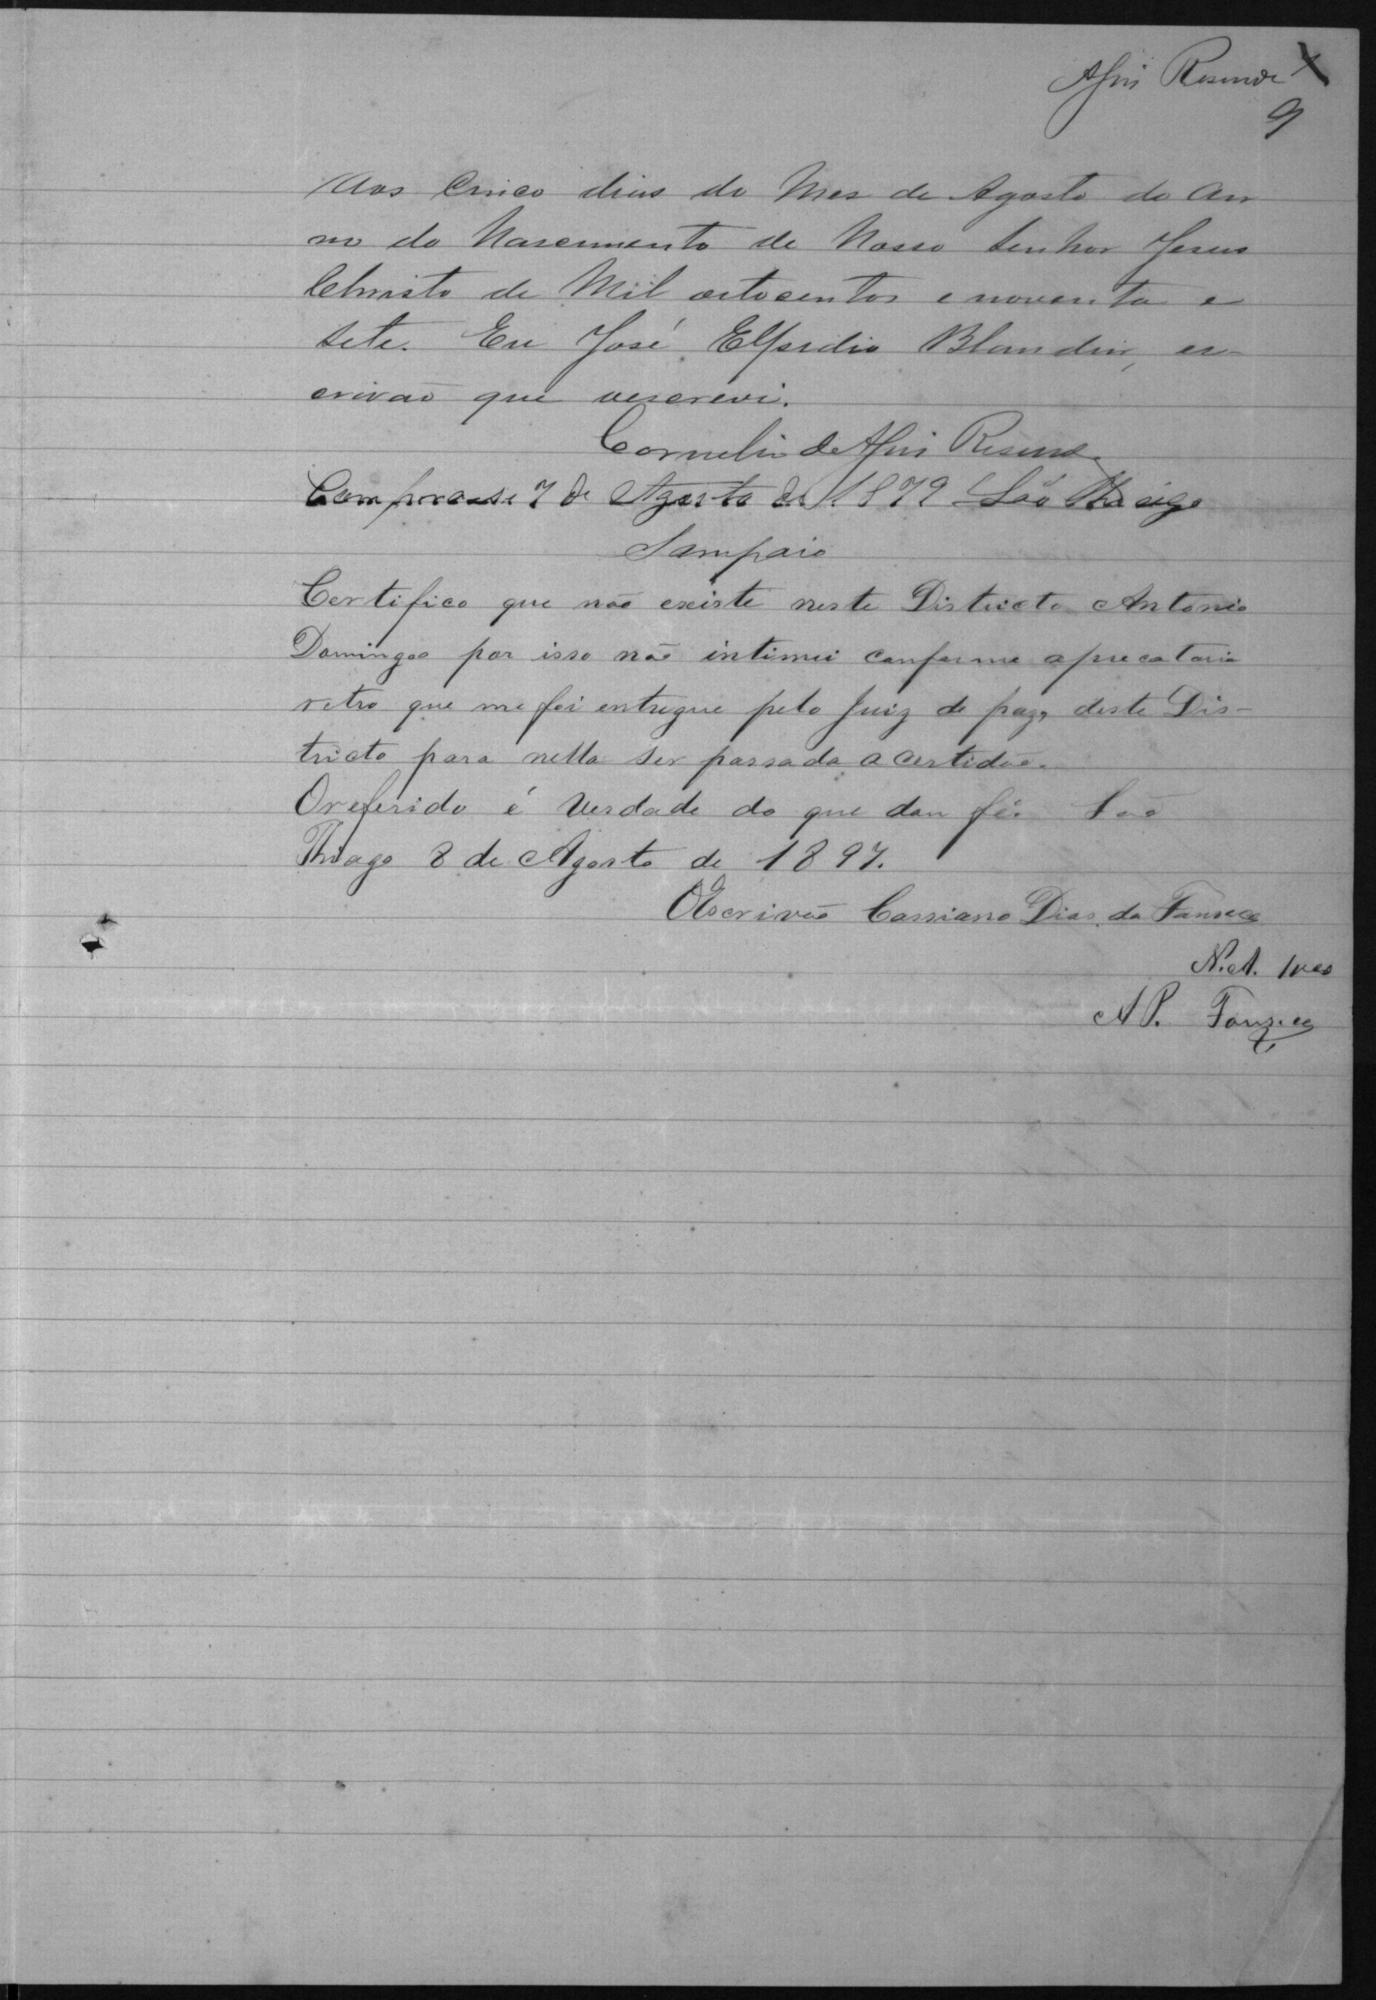 Assis Resende
9
Aos Cinco dias do Mes de Agosto do An
no do Nascimento de Nosso Senhor Jesus
Christo de Mil oitocentos e noventa e
Sete. Eu José Elpidio Blandin, es-
crivão que escrevi.
Cornelio de Assis Resende
Cumpra-se 7 de Agosto de 1879 São Thiago
Sampaio
Certifico que não existe neste Districto Antonio
Domingos por isso não intimei conforme a precatoria
retro que me foi entregue pelo Juiz de paz, deste Dis-
tricto para nella ser passada a certidão.
O referido é verdade do que dou fé. São
Thiago 8 de Agosto de 1897.
O Escrivão Cassiano Dias da Fonseca
N. A.
A P. Fonseca